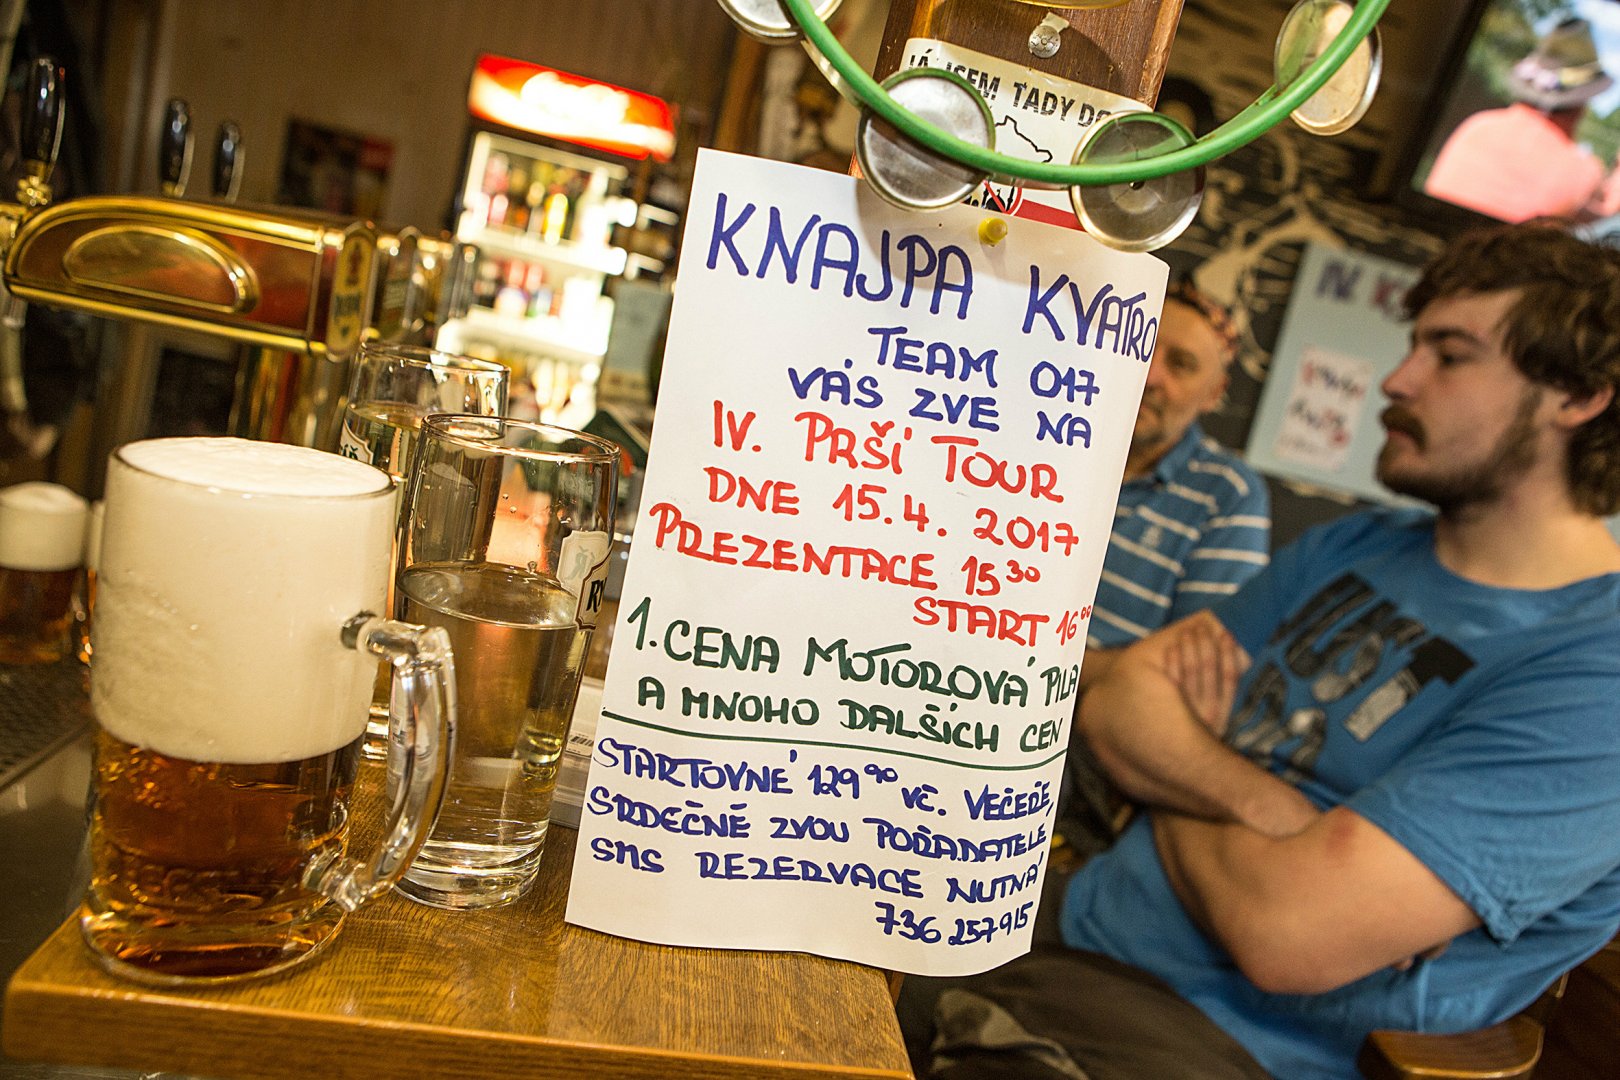 JÁ JSEM TADY DO
KNAJPA KVATRO
TEAM 017
VÁS ZVE NA
IV. PRŠÍ TOUR
DNE 15.4. 2017
PREZENTACE 15³⁰
START 16⁰⁰
1. CENA MOTOROVÁ PILA
A MNOHO DALŠÍCH CEN
STARTOVNÉ 129⁹⁰ VČ. VEČEŘE,
SRDEČNĚ ZVOU POŘADATELÉ
SMS REZERVACE NUTNÁ
736 257 915